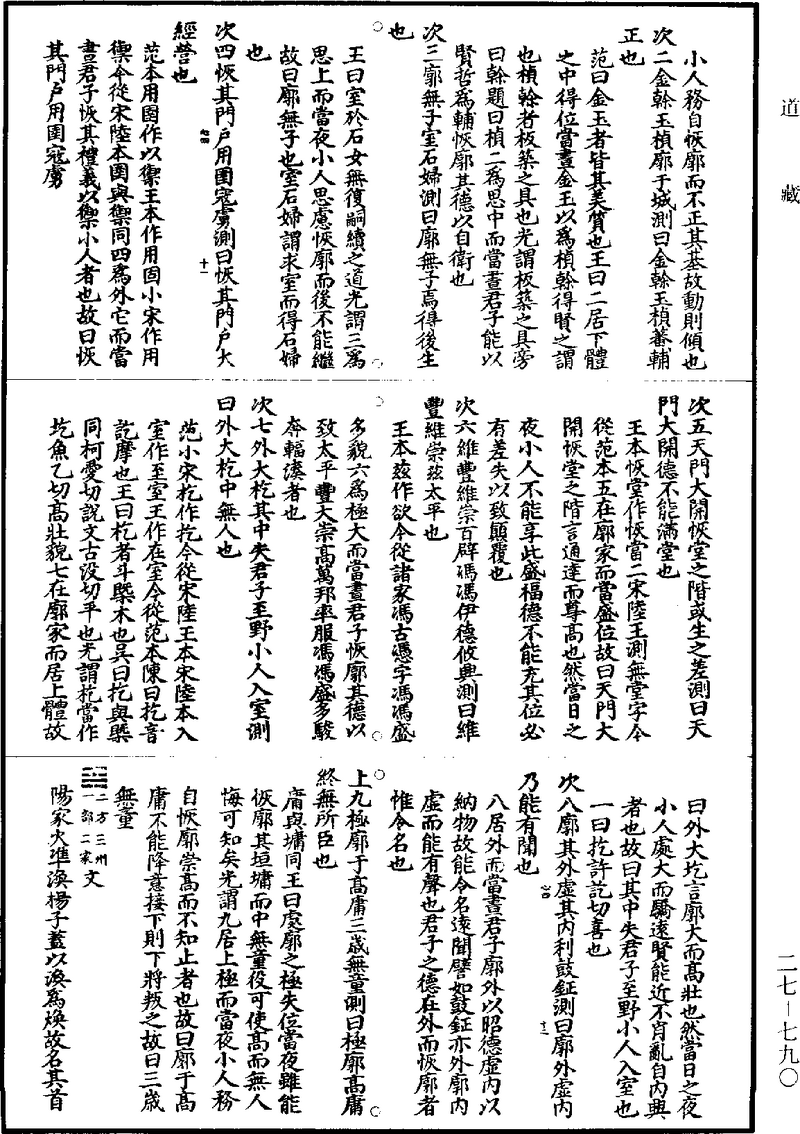 道藏
小人務自恢廓而不正其基故動則傾也
次二金榦玉楨廓于城測曰金榦玉楨蕃輔
正也
范曰金玉者皆其美質也王曰二居下體
之中得位當晝金玉以爲楨榦得賢之謂
也楨榦者板築之具也光謂板築之具旁
曰榦題曰楨二爲思中而當晝君子能以
賢哲爲輔恢廓其德以自衛也
次三廓無子室石婦測曰廓無子焉得後生
也
王曰室於石女無復嗣續之道光謂三爲
思上而當夜小人思慮恢廓而後不能繼
故曰廓無子也室石婦謂求室而得石婦
也
次四恢其門戶用圉寇虜測曰恢其門戶大
經營也
范本用圉作以禦王本作用固小宋作用
禦今從宋陸本圉與禦同四爲外它而當
晝君子恢其禮義以禦小人者也故曰恢
其門戶用圉寇虜
次五天門大開恢堂之階或生之差測曰天
門大開德不能滿堂也
王本恢堂作恢當二宋陸王測無堂字今
從范本五在廓家而當盛位故曰天門大
開恢堂之階言通達而尊高也然當日之
夜小人不能享此盛福德不能充其位必
有差失以致顛覆也
次六維豐維崇百辟馮馮伊德攸興測曰維
豐維崇茲太平也
王本茲作欲今從諸家馮古憑字馮馮盛
多貌六爲極大而當晝君子恢廓其德以
致太平豐大崇高萬邦率服馮馮盛多駿
奔輻湊者也
次七外大扢其中失君子至野小人入室測
曰外大扢中無人也
范小宋扢作扢今從宋陸王本宋陸本入
室作至室王作在室今從范本陳曰扢音
訖摩也王曰杚者斗槩木也吳曰扢與槩
同柯愛切說文古没切平也光謂扢當作
圪魚乙切高壯貌七在廓家而居上體故
曰外大圪言廓大而高壯也然當日之夜
小人處大而驕遠賢能近不肖亂自內興
者也故曰其中失君子至野小人入室也
一曰扢許訖切喜也
次八廓其外虛其內利鼓鉦測曰廓外虛內
乃能有聞也
八居外而當晝君子廓外以昭德虛內以
納物故能令名遠聞譬如鼓鉦亦外廓內
虛而能有聲也君子之德在外而恢廓者
惟令名也
上九極廓于高庸三歲無童測曰極廓高庸
終無所臣也
庸與墉同王曰處廓之極失位當夜雖能
恢廓其垣墉而中無童役可使高而無人
悔可知矣光謂九居上極而當夜小人務
自恢廓崇高而不知止者也故曰廓于高
庸不能降意接下則下將叛之故曰三歲
無童
二方三州
一部二家
文
陽家火準渙楊子蓋以渙爲煥故名其首
二七－七九〇